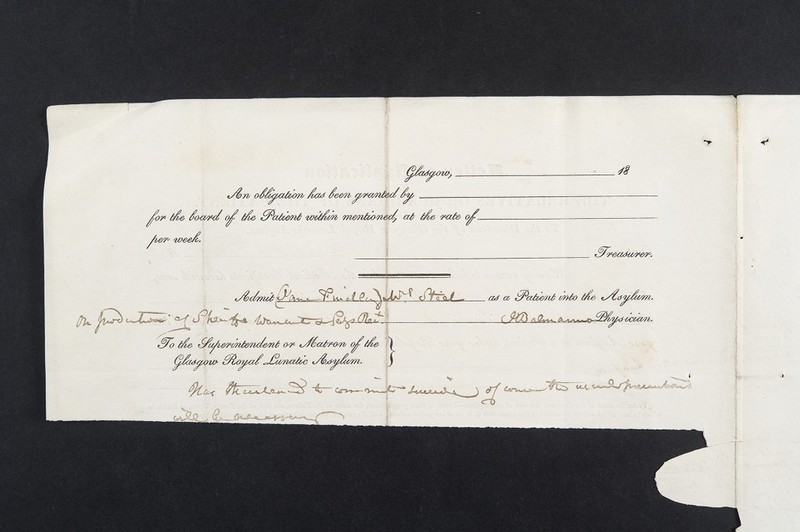 Glasgow, 18
An obligation has been granted by
for the board of the Patient within mentioned, at the rate of
per week.
Treasurer.
Admit (Jane Findlay) Mrs Steel as a Patient into the Asylum.
On production of Sheriffs Warrant & Balmanno Physician.
To the Superintendent or Matron of the
Glasgow Royal Lunatic Asylum.
Has threatened to commit suicide, of course the usual precautions
will be necessary